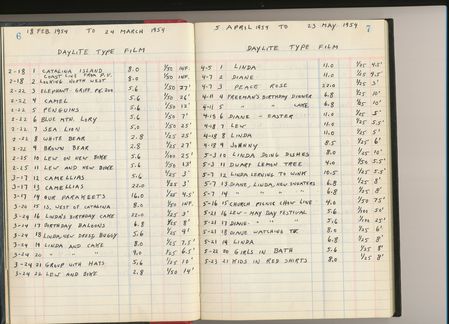 6 18 FEB. 1954 TO 24 MARCH 1954
DAYLITE TYPE FILM
2-18 1 CATALINA ISLAND 8.0 1/50 INF.
COAST LINE FROM P.V.
2-18 2 LOOKING NORTH WEST 8.0 1/50 INF.
2-22 3 ELEPHANT- GRIFF. PK. ZOO 5.6 1/50 27'
2-22 4 CAMEL 5.6 1/50 26'
2-22 5 PENGUINS 5.6 1/50 13'
2-22 6 BLUE MTN. LORY 5.6 1/50 7'
2-22 7 SEA LION 5.0 1/50 25'
2-22 8 WHITE BEAR 2.8 1/25 25'
2-22 9 BROWN BEAR 2.8 1/25 27'
2-25 10 LEW ON NEW BIKE 5.6 1/50 25'
2-25 11 LEW AND NEW BIKE 5.6 1/50 13'
3-17 12 CAMELLIAS 5.6 1/25 3'
3-17 13 CAMELLIAS 22.0 1/25 3'
3-17 14 OUR PARAKEETS 16.0 1/25 4.5'
3-20 15 S. WEST OF CATALINA 8.0 1/50 INF.
3-24 16 LINDA'S BIRTHDAY CAKE 22.0 1/25 3'
3-24 17 BIRTHDAY BALOONS 6.8 1/25 8'
3-24 18 LINDA, NEW DRESS, BUGGY 5.6 1/25 9'
3-24 19 LINDA AND CAKE 8.0 1/25 7.5'
3-24 20 " " " 9.0 1/25 6.5'
3-24 21 GROUP WITH HATS 5.6 1/25 10'
3-24 22 LEW AND BIKE 2.8 1/50 14'
5 APRIL 1954 TO 23 MAY 1954 7
DAYLITE TYPE FILM
4-5 1 LINDA 11.0 1/25 4.5'
4-7 2 DIANE 11.0 1/25 4.5'
4-7 3 PEACE ROSE 22.0 1/25 3'
4-11 4 FREEMAN'S BIRTHDAY DINNER 6.8 1/25 10'
4-11 5 " " CAKE 6.8 1/25 10'
4-18 6 DIANE - EASTER 11.0 1/25 5'
4-18 7 LEW 11.0 1/25 5.5'
4-18 8 LINDA 11.0 1/25 5'
4-18 9 JOHNNY 8.5 1/25 6'
5-3 10 LINDA DOING DISHES 8.0 1/25 10'
5-3 11 DWARF LEMON TREE 4.0 1/50 5.5'
5-7 12 LINDA SERVING TO WINK 10.5 1/25 5.5'
5-7 13 DIANE, LINDA, NEW SWEATERS 6.8 1/25 8'
5-7 14 " " " " 6.8 1/25 8'
5-16 15 CHURCH PICNIC CHOW LINE 4.0 1/50 75'
5-21 16 LEW - MAY DAY FESTIVAL 5.6 1/100 50'
5-21 17 DIANE - " " 5.6 1/100 25'
5-21 18 DIANE WATCHING TV. 8.0 1/25 6'
5-21 19 LINDA 6.8 1/25 8'
5-22 20 GIRLS IN BATH 5.6 1/25 8'
5-23 21 KIDS IN RED SHIRTS 8.0 1/25 8'